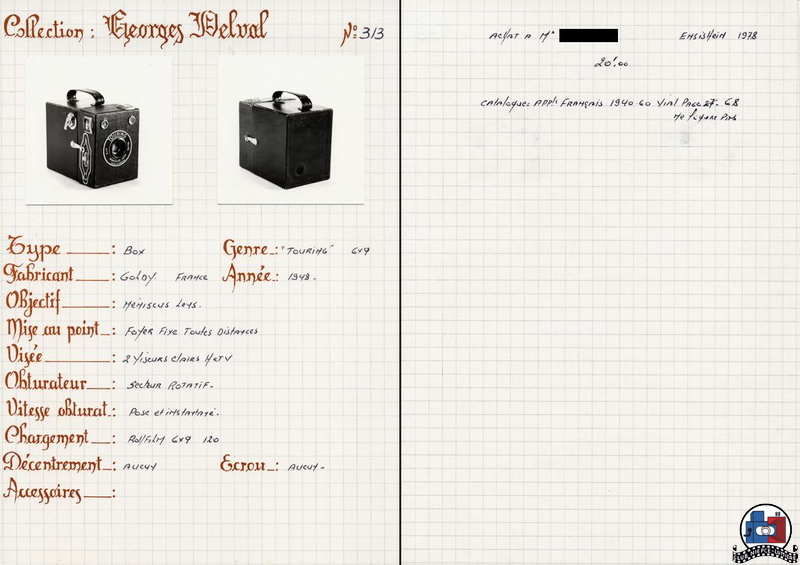 Collection : Georges Delval N° 313
Type : Box Genre : "TOURING" 6x9
Fabricant : GOLDY FRANCE Année : 1948.
Objectif : MENISCUS LENS.
Mise au point : FOYER FIXE TOUTES DISTANCES
Visée : 2 VISEURS CLAIRS H et V
Obturateur : SECTEUR ROTATIF.
Vitesse obturat. : Pose et instantané.
Chargement : Roll Film 6x9 120
Décentrement : AUCUN Ecrou : AUCUN.
Accessoires :
ACHAT A Mr ENSISHEIM 1978
20F.00
CATALOGUE: APPts FRANÇAIS 1940-60 Vial PAGE 68
Ne figure pas